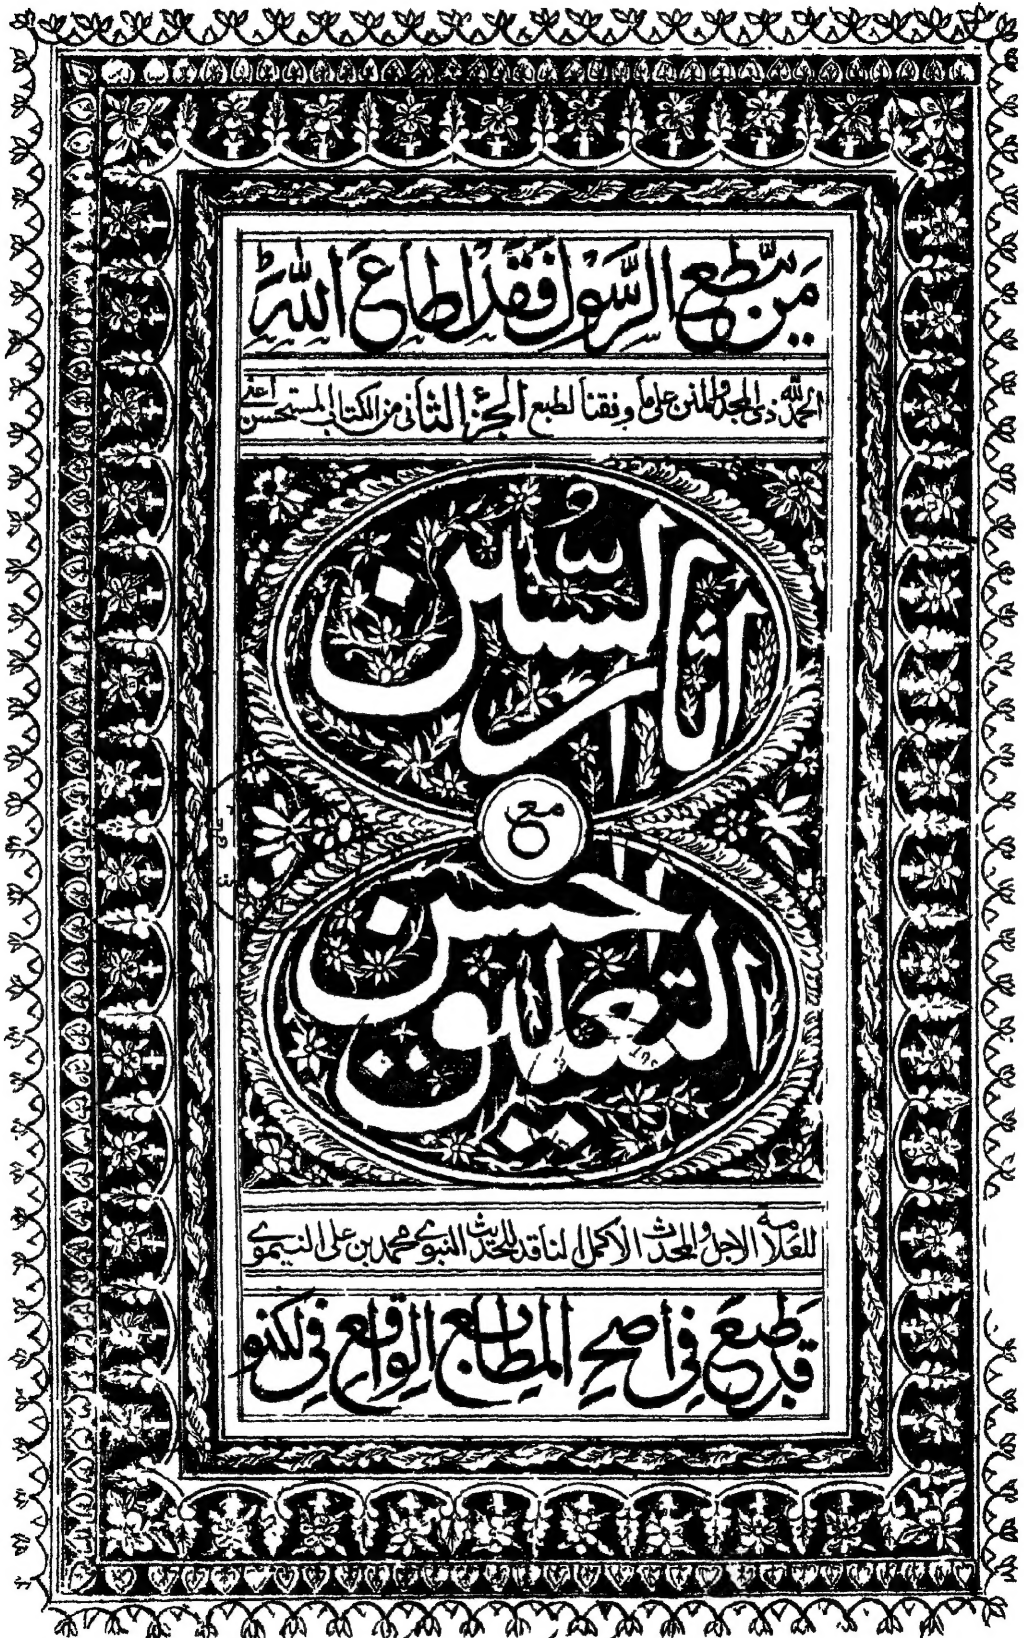 مَن يُّطِعِ الرَّسُوْلَ فَقَدْ اَطَاعَ اللّٰهَ
الحمد لله ذى المجد والمنن على ما وفقنا لطبع الجزء الثانى من الكتاب المستحسن اعنى
اثار السنن
مع
التعليق الحسن
للعلامة الاجل والمحدث الاكمل الناقد للحديث النبوى محمد بن على النيموى
قد طبع فى اصح المطابع الواقع فى لكنو